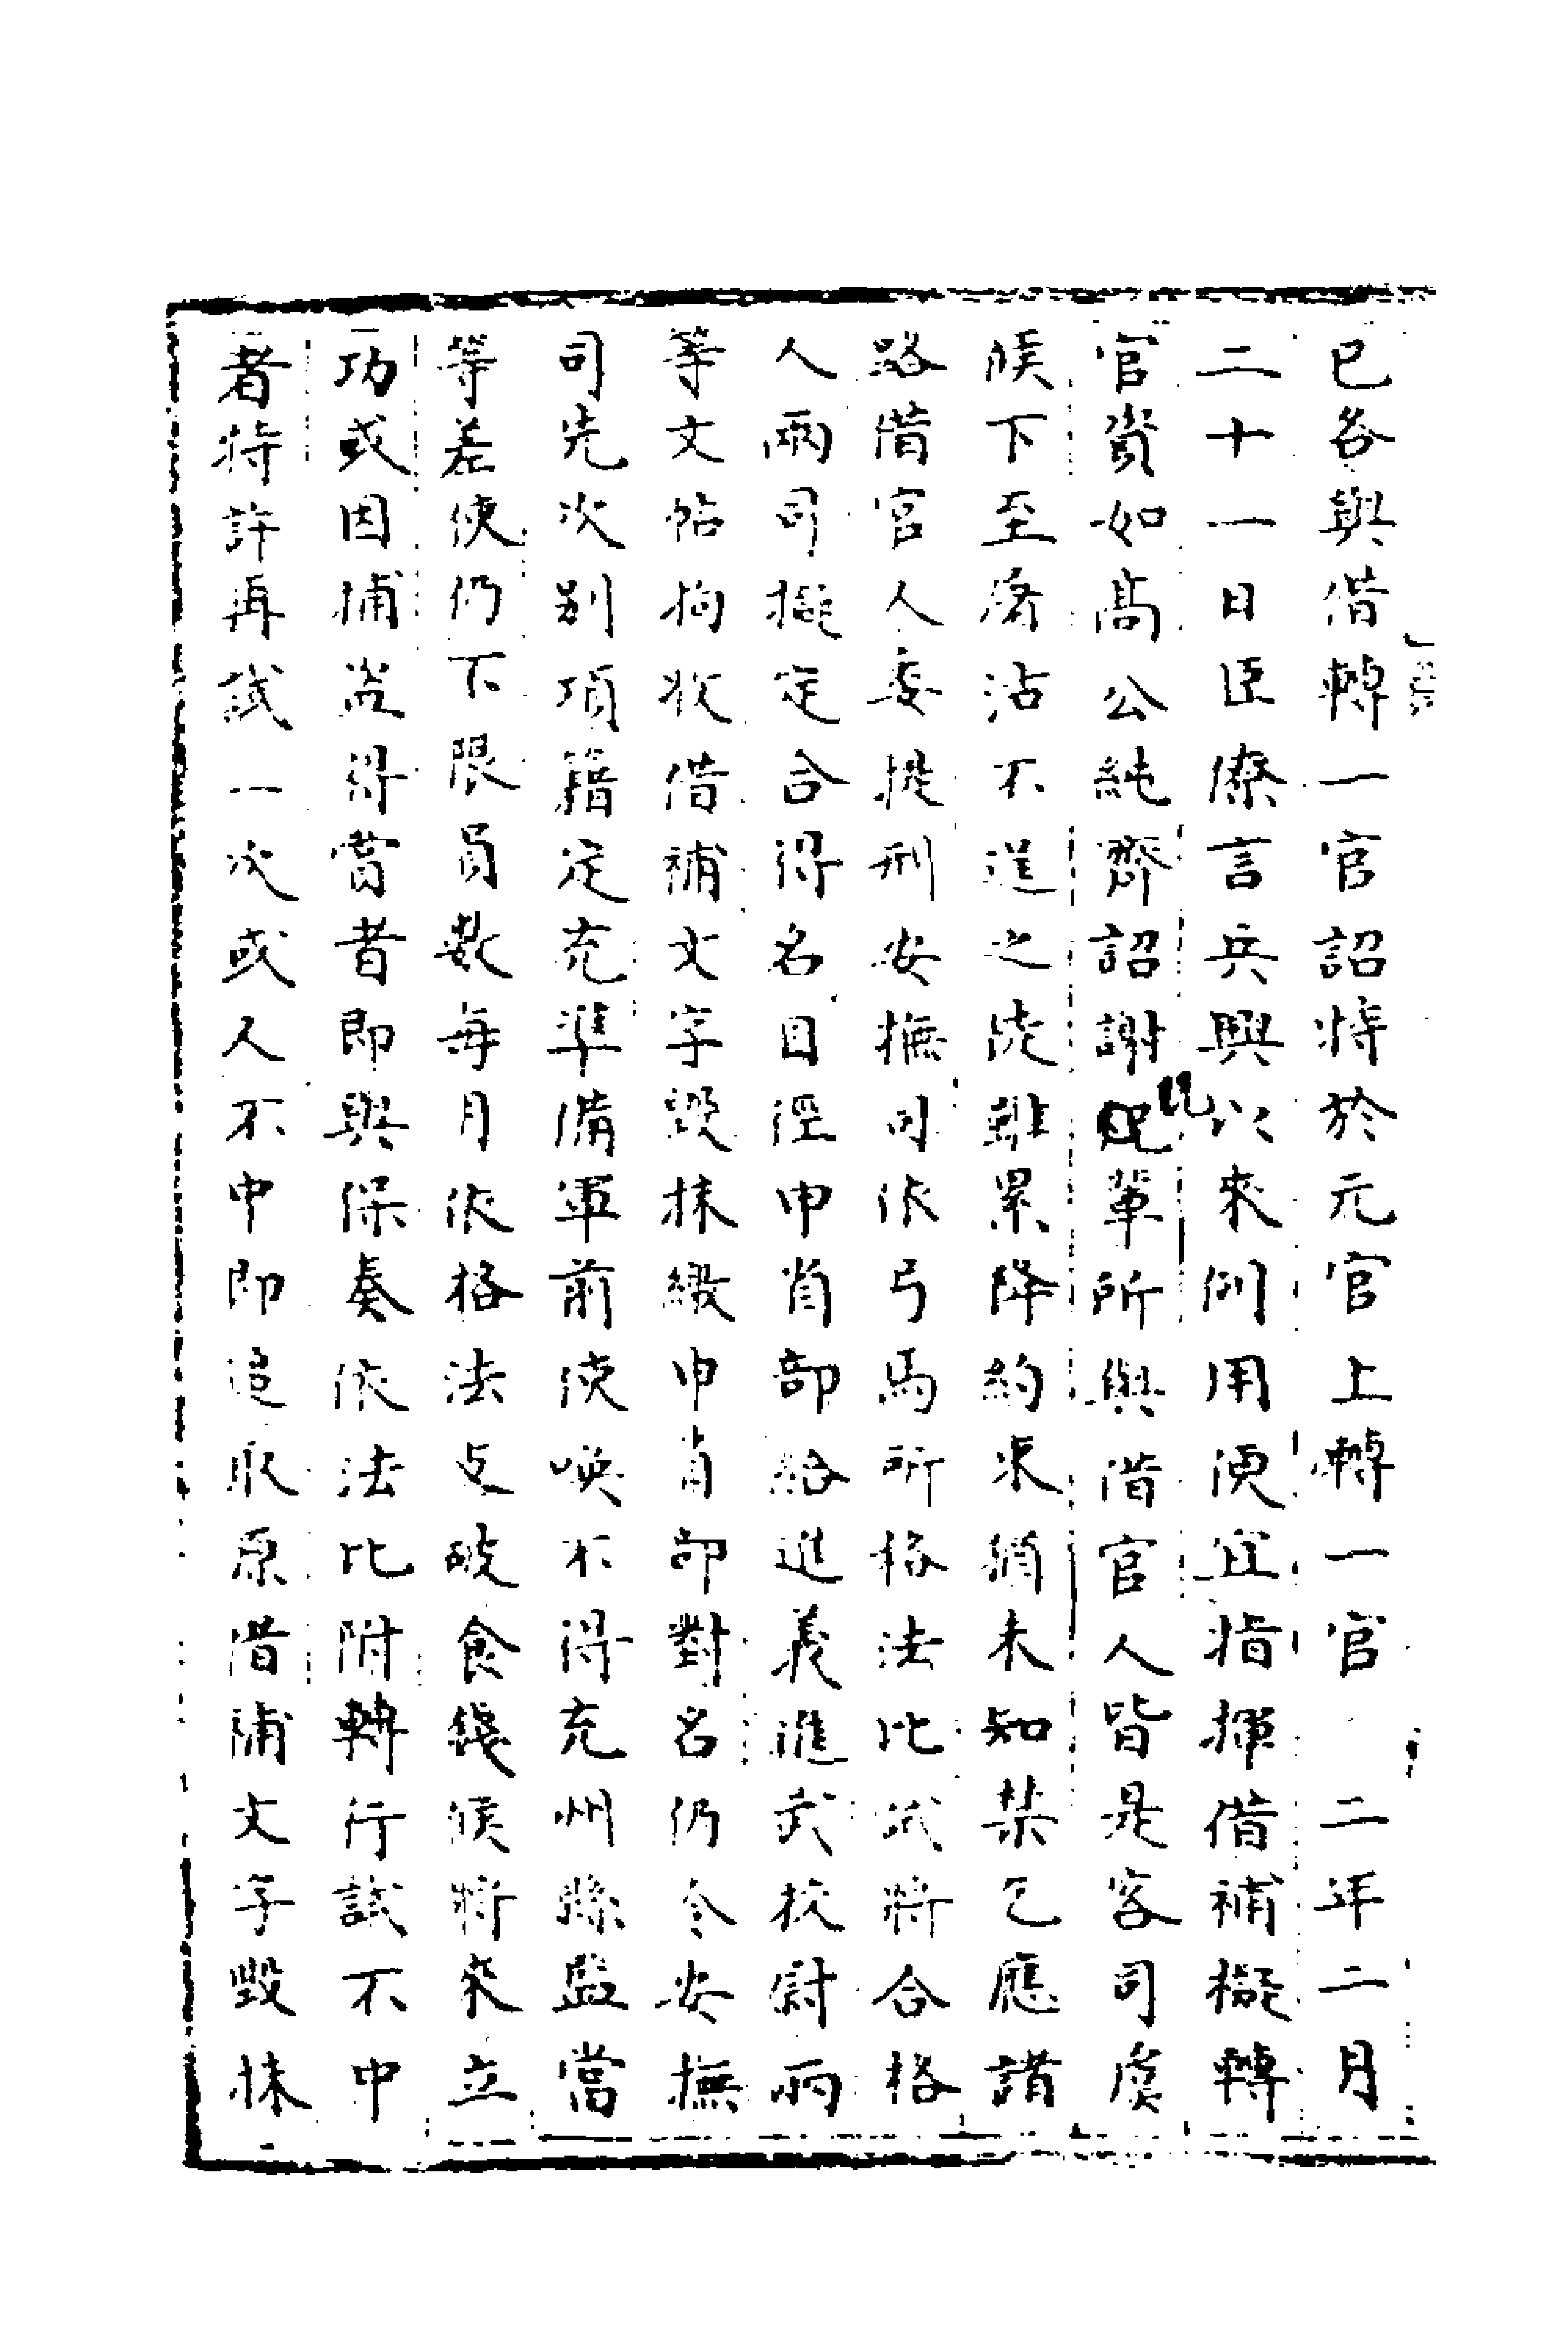 已各與借轉一官詔特於元官上轉一官　二年二月
二十一日臣僚言兵興以來例用便宜指揮借補擬轉
官資如高公純齊詔謝貺輩所與借官人皆是客司虞
候下至屠沽不逞之徒雖累降約束猶未知禁乞應諸
路借官人委提刑安撫司依弓馬所格法比試將合格
人兩司擬定合得名目徑申省部給進義進武校尉兩
等文帖拘收借補文字毀抹繳申省部對名仍令安撫
司先次別項籍定充準備軍前使喚不得充州縣監當
等差使仍不限員數每月依格法支破食錢候將來立
功或因捕盗得賞者即與保奏依法比附轉行試不中
者特許再試一次或人不中即追取原借補文字毀抹